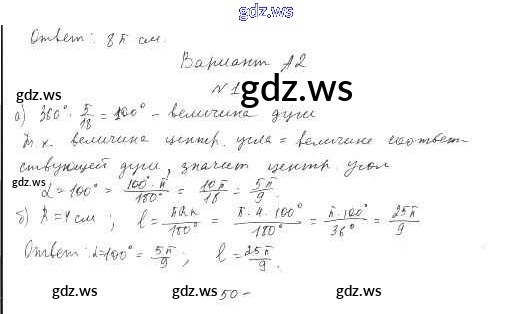 gdz.ws
Ответ: 8π см.
Вариант А2
N 1
gdz.ws gdz.ws
а) 360° · 5/18 = 100° - величина дуги
т.к. величина центр. угла = величине соответ-
ствующей дуги, значит центр. угол
gdz.ws
α = 100° = 100°·π/180° = 10π/18 = 5π/9.
б) R = 4 см; l = πRn/180° = π·4·100°/180° = π·100°/36° = 25π/9
Ответ: α=100° = 5π/9; l = 25π/9.
gdz.ws gdz.ws gdz.ws
- 50 -